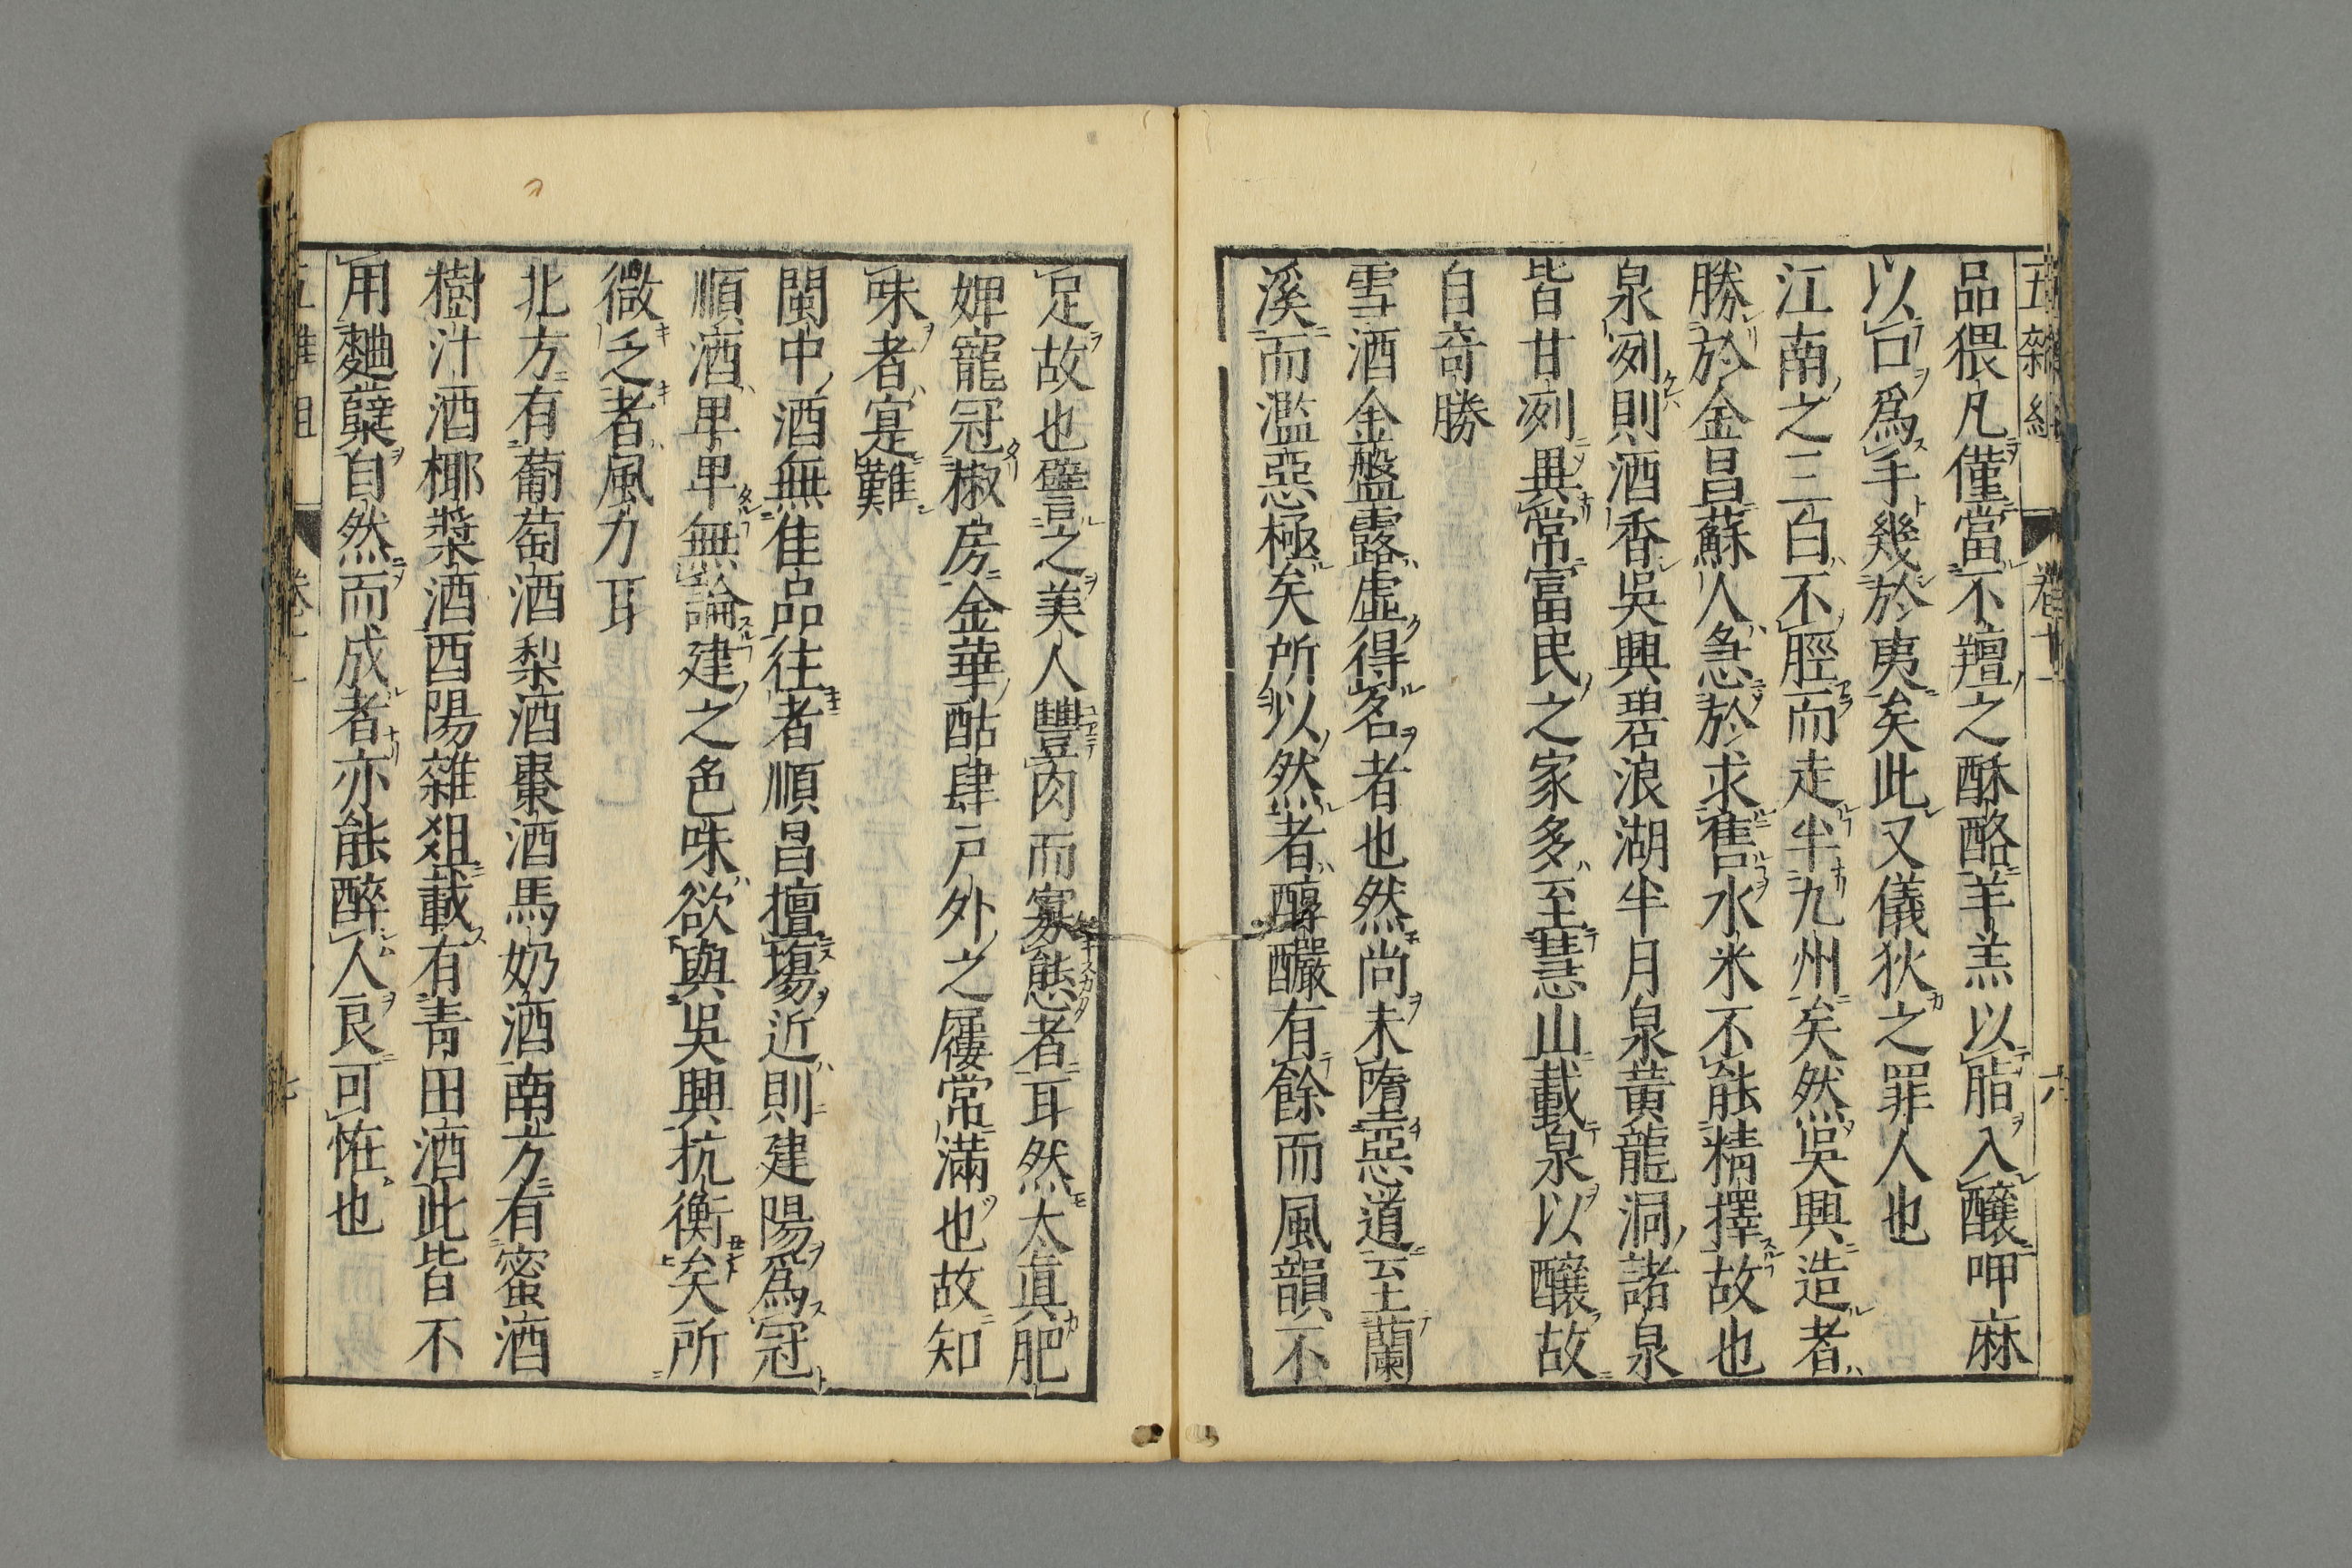 五雜組 卷十一 六
品猥凡僅當不羶之酥酪羊羔以脂入釀呷麻
以口爲手幾於夷矣此又儀狄之罪人也
江南之三白不脛而走半九州矣然吳興造者
勝於金昌蘇人急於求售水米不能精擇故也
泉冽則酒香吳興碧浪湖半月泉黃龍洞諸泉
皆甘冽異常富民之家多至慧山載泉以釀故
自奇勝
雪酒金盤露虛得名者也然尚未墮惡道至蘭
溪而濫惡極矣所以然者醇釅有餘而風韻不
足故也譬之美人豐肉而寡態者耳然太眞肥
婢寵冠椒房金華酤肆戸外之屨常滿也故知
味者寔難
閩中酒無佳品往者順昌擅塲近則建陽爲冠
順酒卑卑無論建之色味欲與吳興抗衡矣所
微乏者風力耳
北方有葡萄酒梨酒棗酒馬奶酒南方有蜜酒
樹汁酒椰漿酒酉陽雜俎載有靑田酒此皆不
用麯糱自然而成者亦能醉人良可恠也